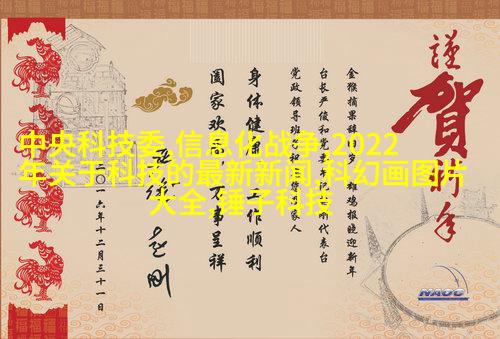 中央科技委,信息化战争,2022
年关于科技的最新新闻,科幻画图片
大全,锤子科技
謹賀新年
金猴摘果辞岁 雄鸡报晓迎新年
台长严俊和党委代表台
党政领导班家人
身体健康 工作顺利
阖家欢 万事呈祥
赵刚
二〇一六年十二月三十一日
NAOC